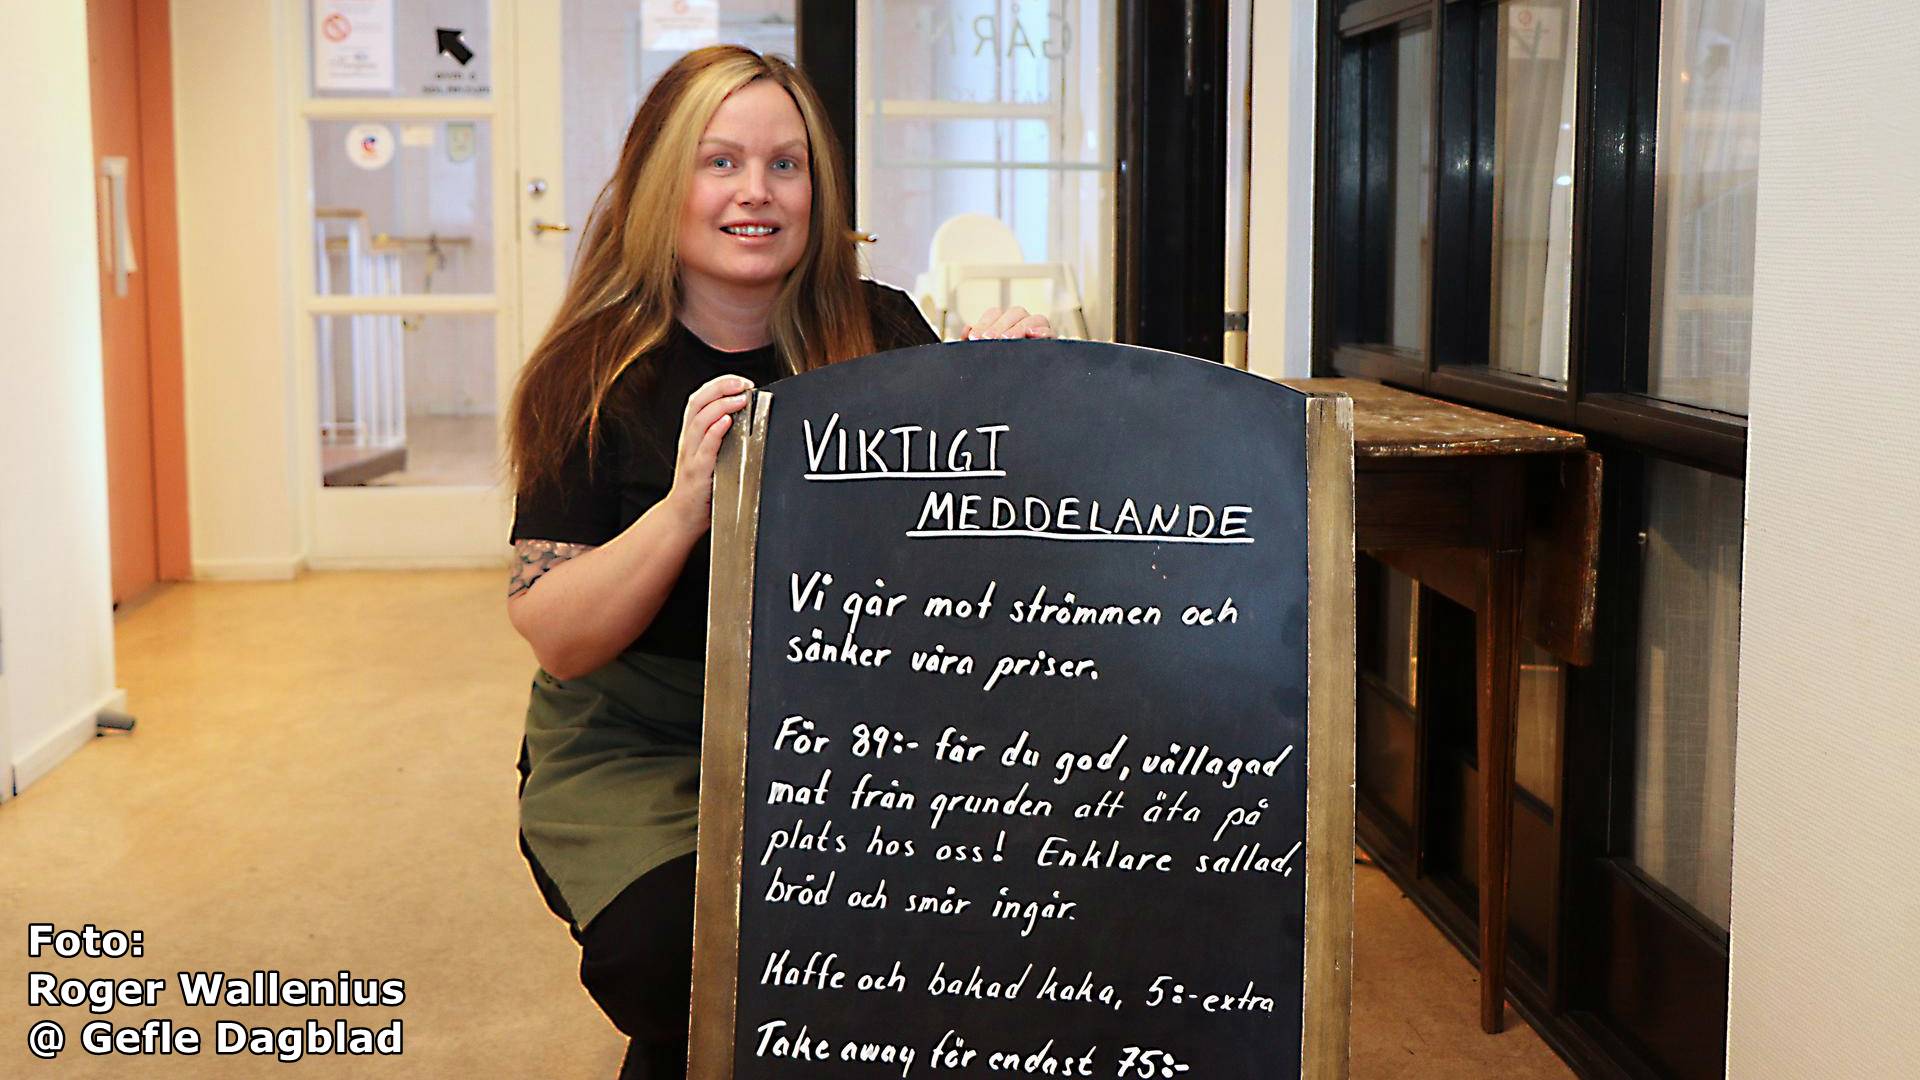 GÅR'N
VIKTIGT
MEDDELANDE
Vi går mot strömmen och
sänker våra priser.
För 89:- får du god, vällagad
mat från grunden att äta på
plats hos oss! Enklare sallad,
bröd och smör ingår.
Kaffe och bakad kaka, 5:-extra
Take away för endast 75:-
Foto:
Roger Wallenius
@ Gefle Dagblad